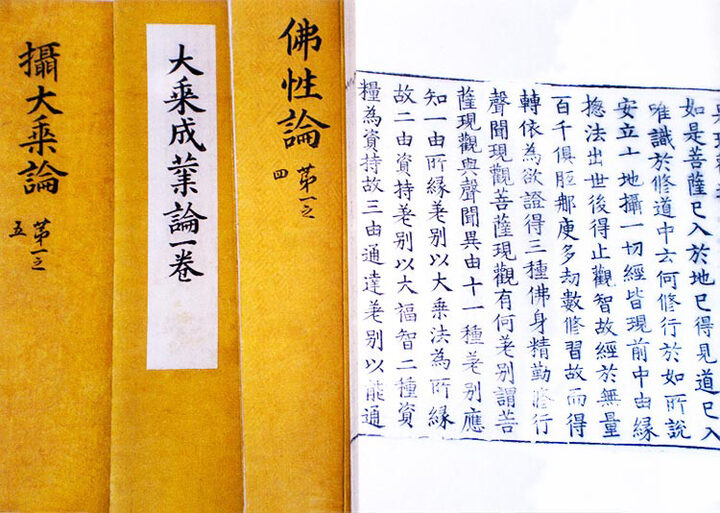 如是菩薩已入於地已得見道已入
唯識於修道中云何修行於如所說
安立十地攝一切經皆現前中由緣
揔法出世後得止觀智故經於無量
百千俱胝那庾多劫數修習故而得
轉依為欲證得三種佛身精勤修行
聲聞現觀菩薩現觀有何差別謂菩
薩現觀與聲聞異由十一種差別應
知一由所緣差別以大乘法為所緣
故二由資持差別以大福智二種資
糧為資持故三由通達差別以能通
佛性論
第一之
四
大乘成業論一卷
攝大乘論
第一之
五